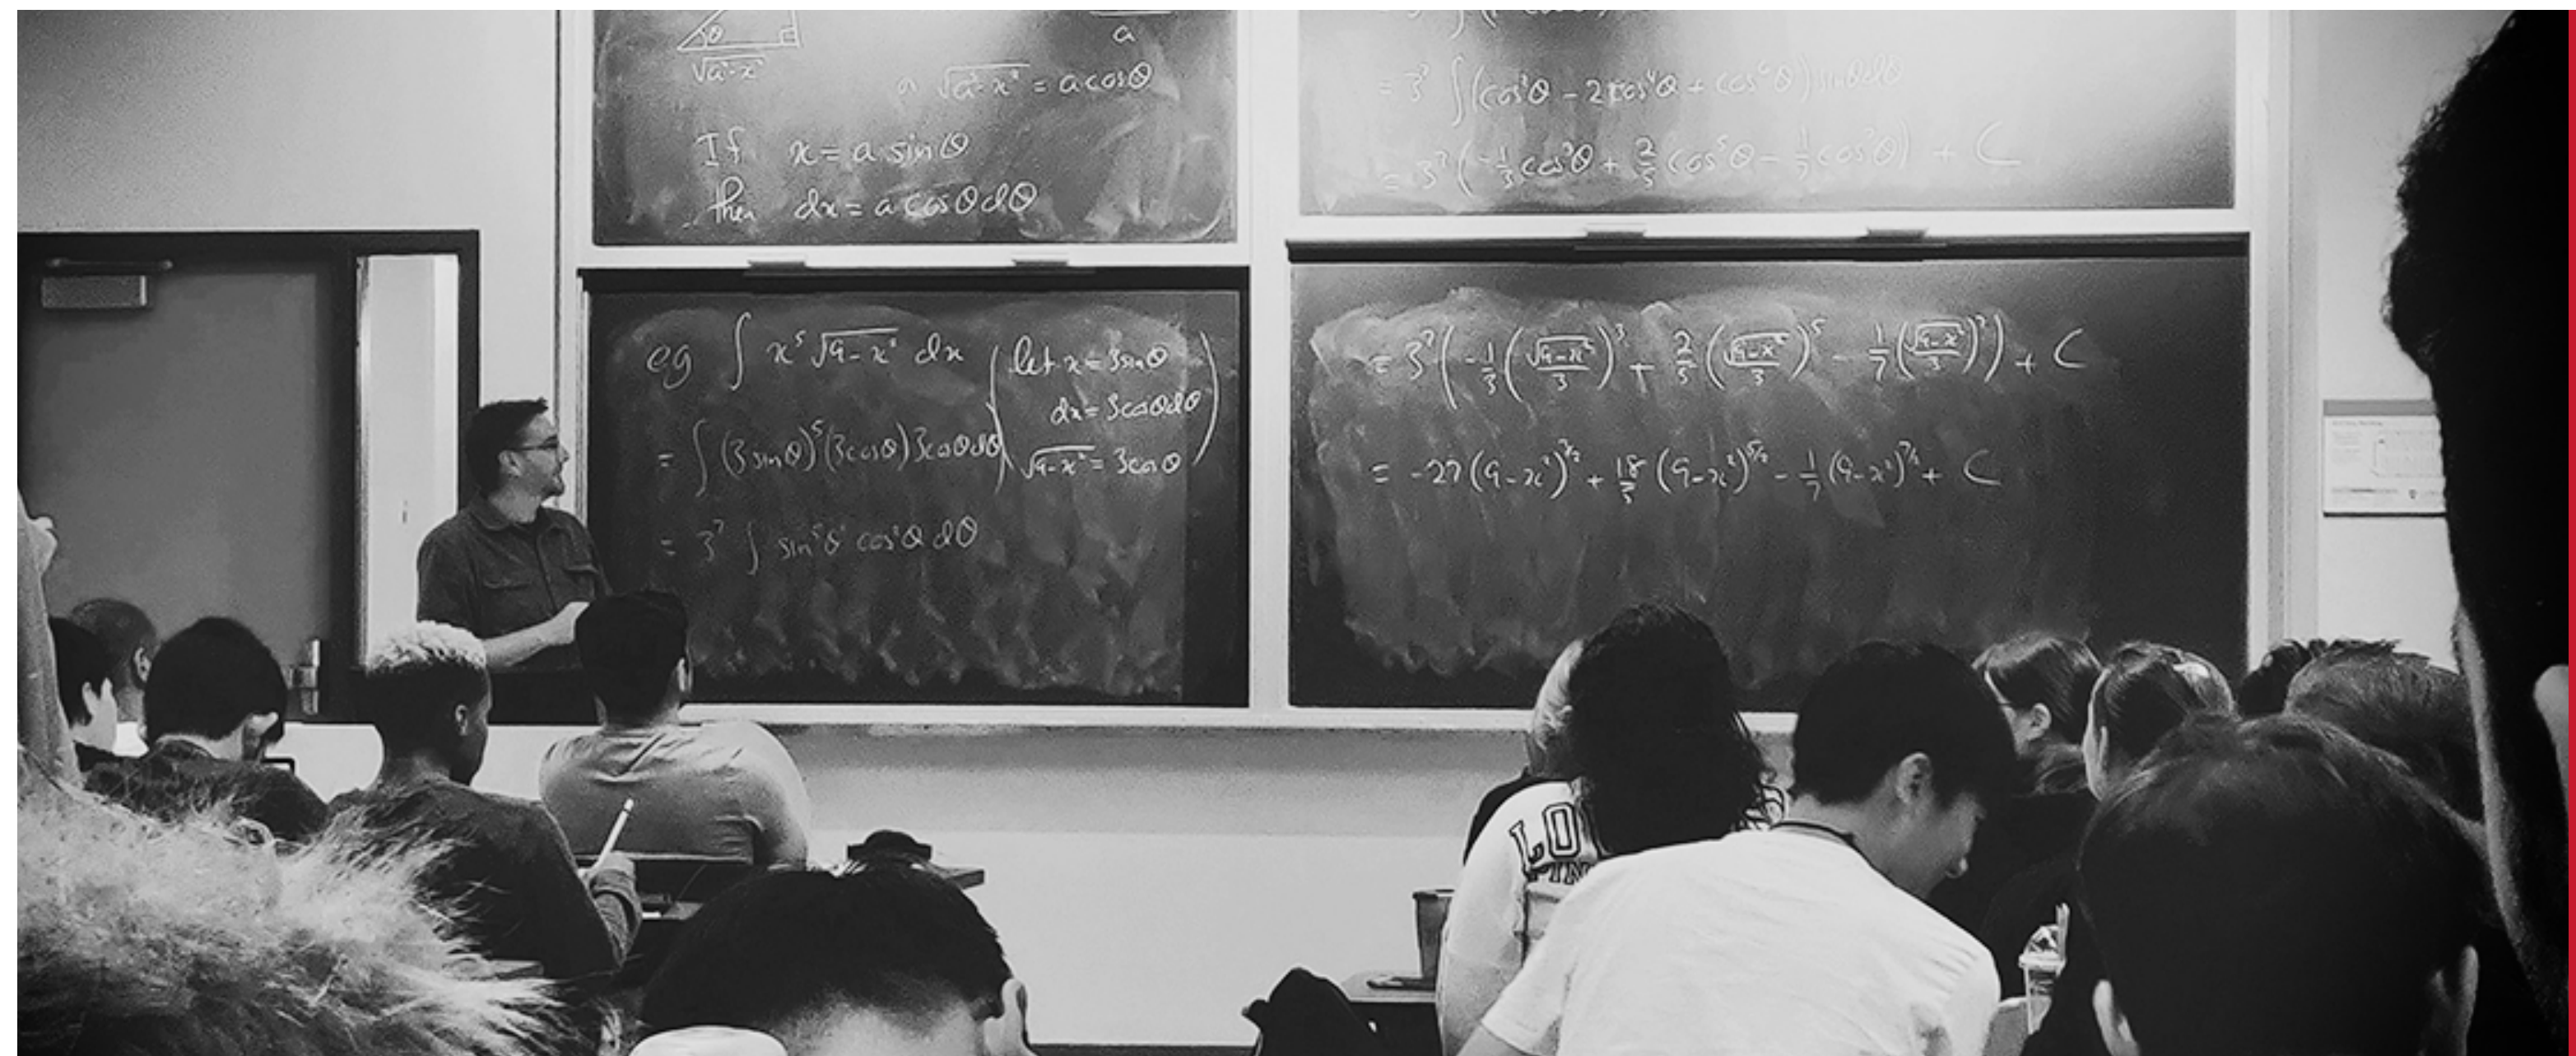 θ
√a²-x²
a
or √a²-x² = a cosθ
If x = a sinθ
then dx = a cosθ dθ
= 3⁷ ∫(cos²θ - 2cos⁴θ + cos⁶θ) sinθdθ
= 3⁷ (-1/3 cos³θ + 2/5 cos⁵θ - 1/7 cos⁷θ) + C
eg ∫ x⁵ √9-x² dx (let x = 3sinθ
dx = 3cosθdθ
√9-x² = 3cosθ)
= ∫ (3sinθ)⁵ (3cosθ) 3cosθdθ
= 3⁷ ∫ sin⁵θ cos²θ dθ
= 3⁷ (-1/3 (√9-x²/3)³ + 2/5 (√9-x²/3)⁵ - 1/7 (√9-x²/3)⁷) + C
= -27 (9-x²)^3/2 + 18/5 (9-x²)^5/2 - 1/7 (9-x²)^7/2 + C
LO